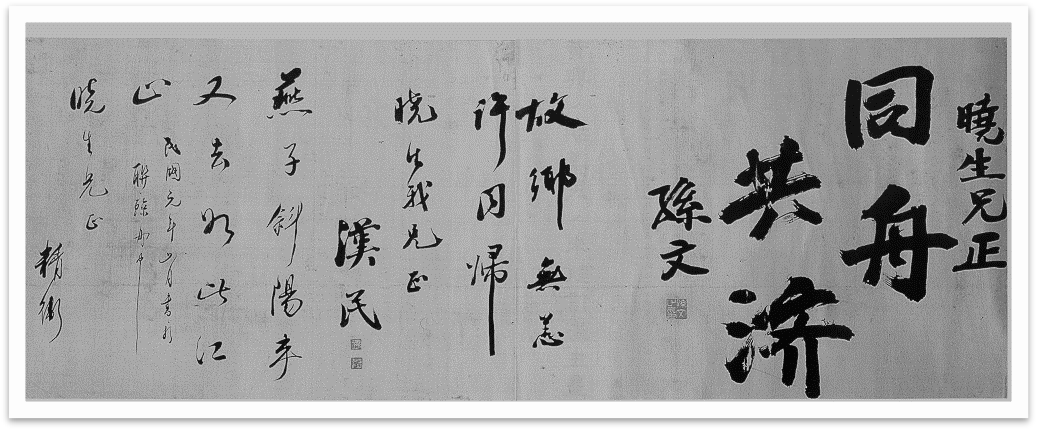 曉生兄正
同舟
共濟
孫文
故鄉無恙
許同歸
曉生我兄正
漢民
燕子斜陽來
又去如此江
山
民國元年月書於
聯鯨舟中
曉生兄正
精衛